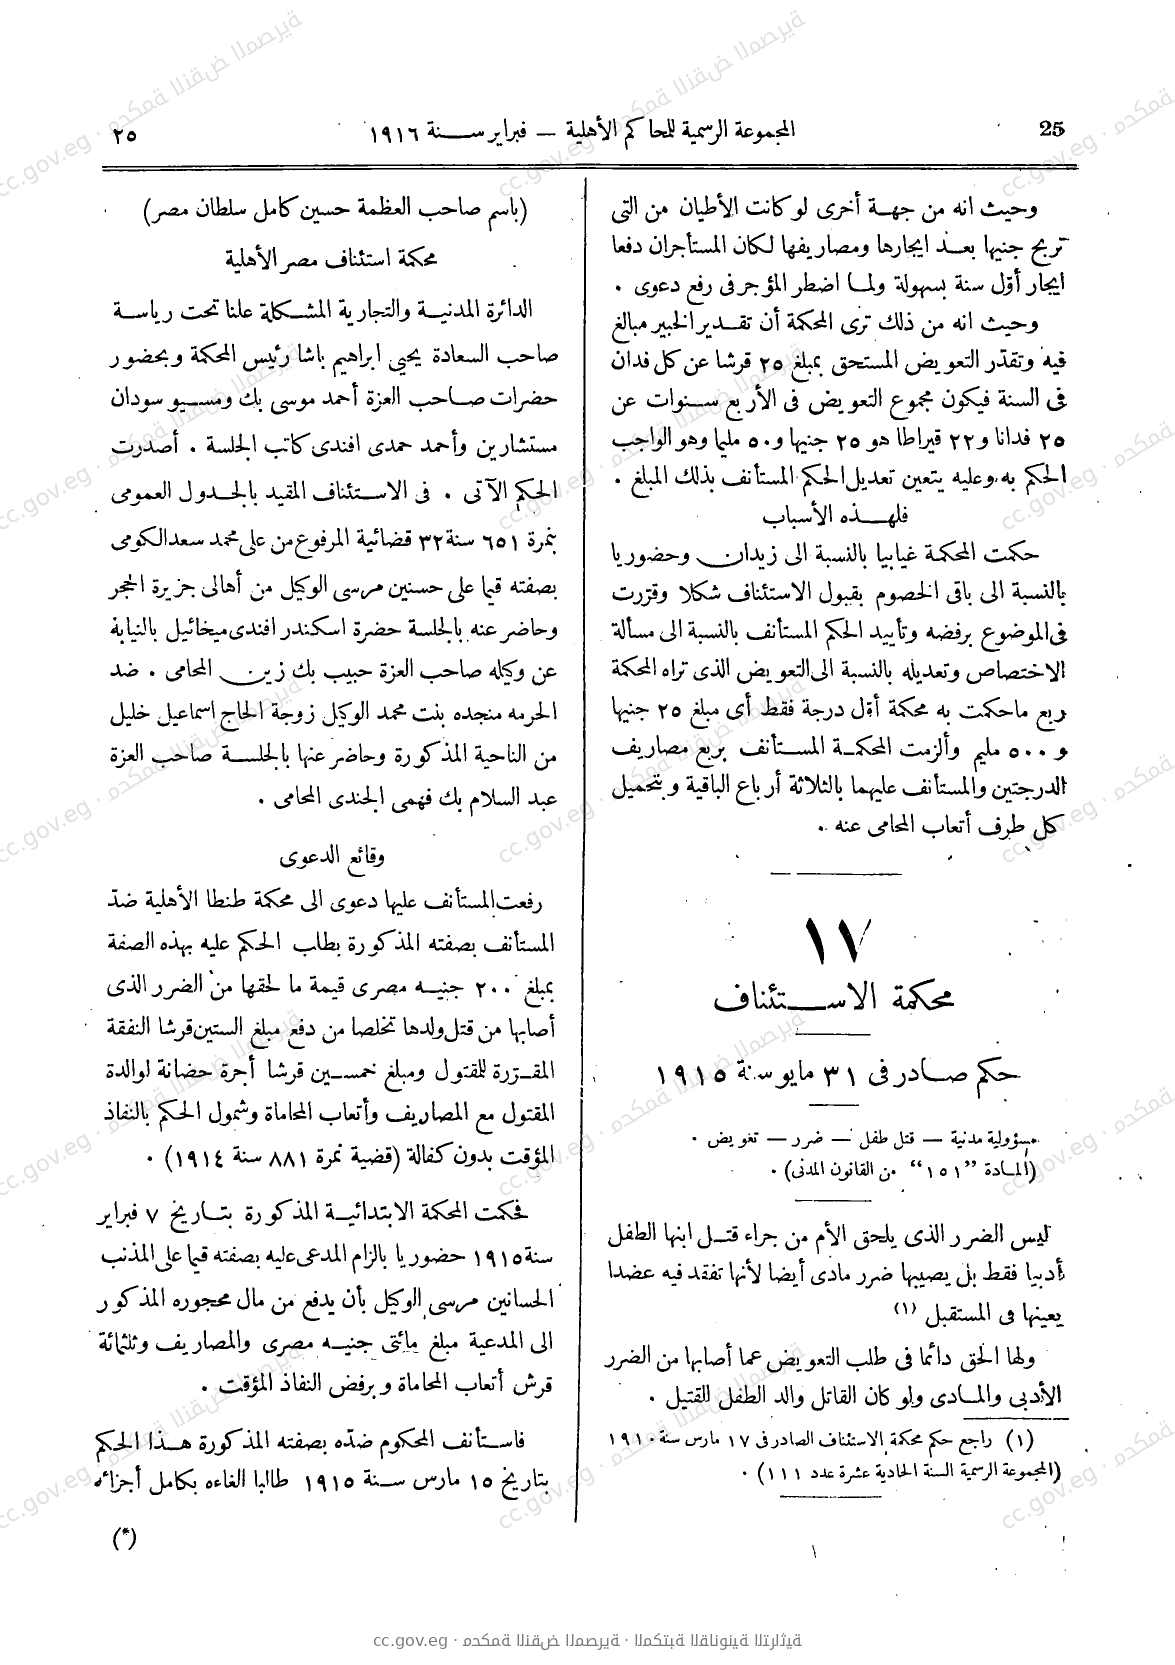 25
المجموعة الرسمية للمحاكم الأهلية — فبراير سنة ١٩١٦
٢٥
وحيث انه من جهة أخرى لو كانت الأطيان من التى
تربح جنيها بعد ايجارها ومصاريفها لكان المستأجران دفعا
ايجار أوّل سنة بسهولة ولما اضطر المؤجر فى رفع دعوى .
وحيث انه من ذلك ترى المحكمة أن تقدير الخبير مبالغ
فيه وتقدّر التعويض المستحق بمبلغ ٢٥ قرشا عن كل فدان
فى السنة فيكون مجموع التعويض فى الأربع سنوات عن
٢٥ فدانا و٢٢ قيراطا هو ٢٥ جنيها و٥٠ مليما وهو الواجب
الحكم به وعليه يتعين تعديل الحكم المستأنف بذلك المبلغ .
فلهذه الأسباب
حكمت المحكمة غيابيا بالنسبة الى زيدان وحضوريا
بالنسبة الى باقى الخصوم بقبول الاستئناف شكلا وقرّرت
فى الموضوع برفضه وتأييد الحكم المستأنف بالنسبة الى مسألة
الاختصاص وتعديله بالنسبة الى التعويض الذى تراه المحكمة
ربع ماحكمت به محكمة أوّل درجة فقط أى مبلغ ٢٥ جنيها
و ٥٠٠ مليم وألزمت المحكمة المستأنف بربع مصاريف
الدرجتين والمستأنف عليهما بالثلاثة أرباع الباقية وبتحميل
كل طرف أتعاب المحامى عنه .
١٧
محكمة الاستئناف
حكم صادر فى ٣١ مايو سنة ١٩١٥
مسؤولية مدنية — قتل طفل — ضرر — تعويض .
(المادة “١٥١” من القانون المدنى) .
ليس الضرر الذى يلحق الأم من جراء قتل ابنها الطفل
أدبيا فقط بل يصيبها ضرر مادى أيضا لأنها تفقد فيه عضدا
يعينها فى المستقبل (١)
ولها الحق دائما فى طلب التعويض عما أصابها من الضرر
الأدبى والمادى ولو كان القاتل والد الطفل القتيل .
(١) راجع حكم محكمة الاستئناف الصادر فى ١٧ مارس سنة ١٩١٠
(المجموعة الرسمية السنة الحادية عشرة عدد ١١١) .
(باسم صاحب العظمة حسين كامل سلطان مصر)
محكمة استئناف مصر الأهلية
الدائرة المدنية والتجارية المشكلة علنا تحت رياسة
صاحب السعادة يحيى ابراهيم باشا رئيس المحكمة وبحضور
حضرات صاحب العزة أحمد موسى بك ومسيو سودان
مستشارين وأحمد حمدى افندى كاتب الجلسة . أصدرت
الحكم الآتى . فى الاستئناف المقيد بالجدول العمومى
بنمرة ٦٥١ سنة ٣٢ قضائية المرفوع من على محمد سعد الكومى
بصفته قيما على حسنين مرسى الوكيل من أهالى جزيرة الحجر
وحاضر عنه بالجلسة حضرة اسكندر افندى ميخائيل بالنيابة
عن وكيله صاحب العزة حبيب بك زين المحامى . ضد
الحرمه منجده بنت محمد الوكيل زوجة الحاج اسماعيل خليل
من الناحية المذكورة وحاضر عنها بالجلسة صاحب العزة
عبد السلام بك فهمى الجندى المحامى .
وقائع الدعوى
رفعت المستأنف عليها دعوى الى محكمة طنطا الأهلية ضدّ
المستأنف بصفته المذكورة بطلب الحكم عليه بهذه الصفة
بمبلغ ٢٠٠ جنيه مصرى قيمة ما لحقها من الضرر الذى
أصابها من قتل ولدها تخلصا من دفع مبلغ الستين قرشا النفقة
المقرّرة للمقتول ومبلغ خمسين قرشا أجرة حضانة لوالدة
المقتول مع المصاريف وأتعاب المحاماة وشمول الحكم بالنفاذ
المؤقت بدون كفالة (قضية نمرة ٨٨١ سنة ١٩١٤) .
فحكمت المحكمة الابتدائية المذكورة بتاريخ ٧ فبراير
سنة ١٩١٥ حضوريا بالزام المدعى عليه بصفته قيما على المذنب
الحسانين مرسى الوكيل بأن يدفع من مال محجوره المذكور
الى المدعية مبلغ مائتى جنيه مصرى والمصاريف وثلثمائة
قرش أتعاب المحاماة وبرفض النفاذ المؤقت .
فاستأنف المحكوم ضدّه بصفته المذكورة هذا الحكم
بتاريخ ١٥ مارس سنة ١٩١٥ طالبا الغاءه بكامل أجزائه
(*)
cc.gov.eg · محكمة النقض المصرية · المكتبة القانونية التراثية